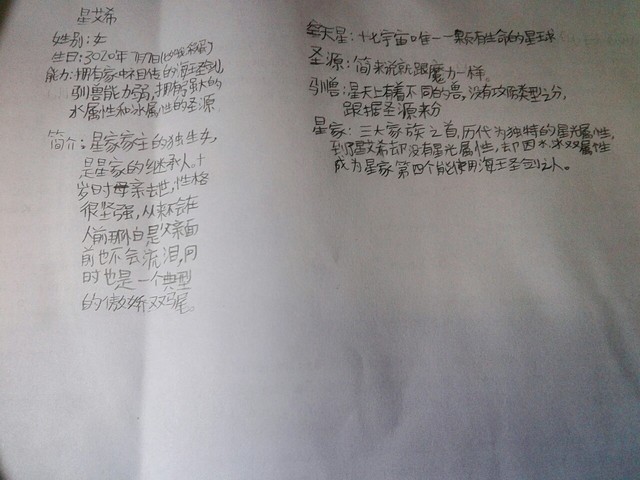 星艾希
姓别:女
生日:3020年7月7日
能力:拥有家中相传的海王圣剑,
驯兽能力强,拥有强大的
水属性和冰属性的圣源
简介:星家家主的独生女,
是星家的继承人。十
岁时母亲去世,性格
很坚强,从来不会在
人前哪怕是父亲面
前也不会流泪,同
时也是一个典型
的傲娇双马尾。
星天星:十七宇宙唯一一颗有生命的星球
圣源:简来说就跟魔力一样。
驯兽:星天上有着不同的兽,没有攻防类型之分,
跟据圣源来分
星家:三大家族之首,历代为独特的星光属性,
到了星艾希却没有星光属性,却因水冰双属性
成为星家第四个能使用海王圣剑之人。